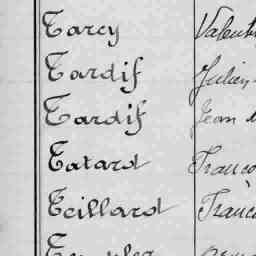 Tarcy Valenti
Tardif Julien
Tardif Jean
Tatard Franço
Teillard Franç